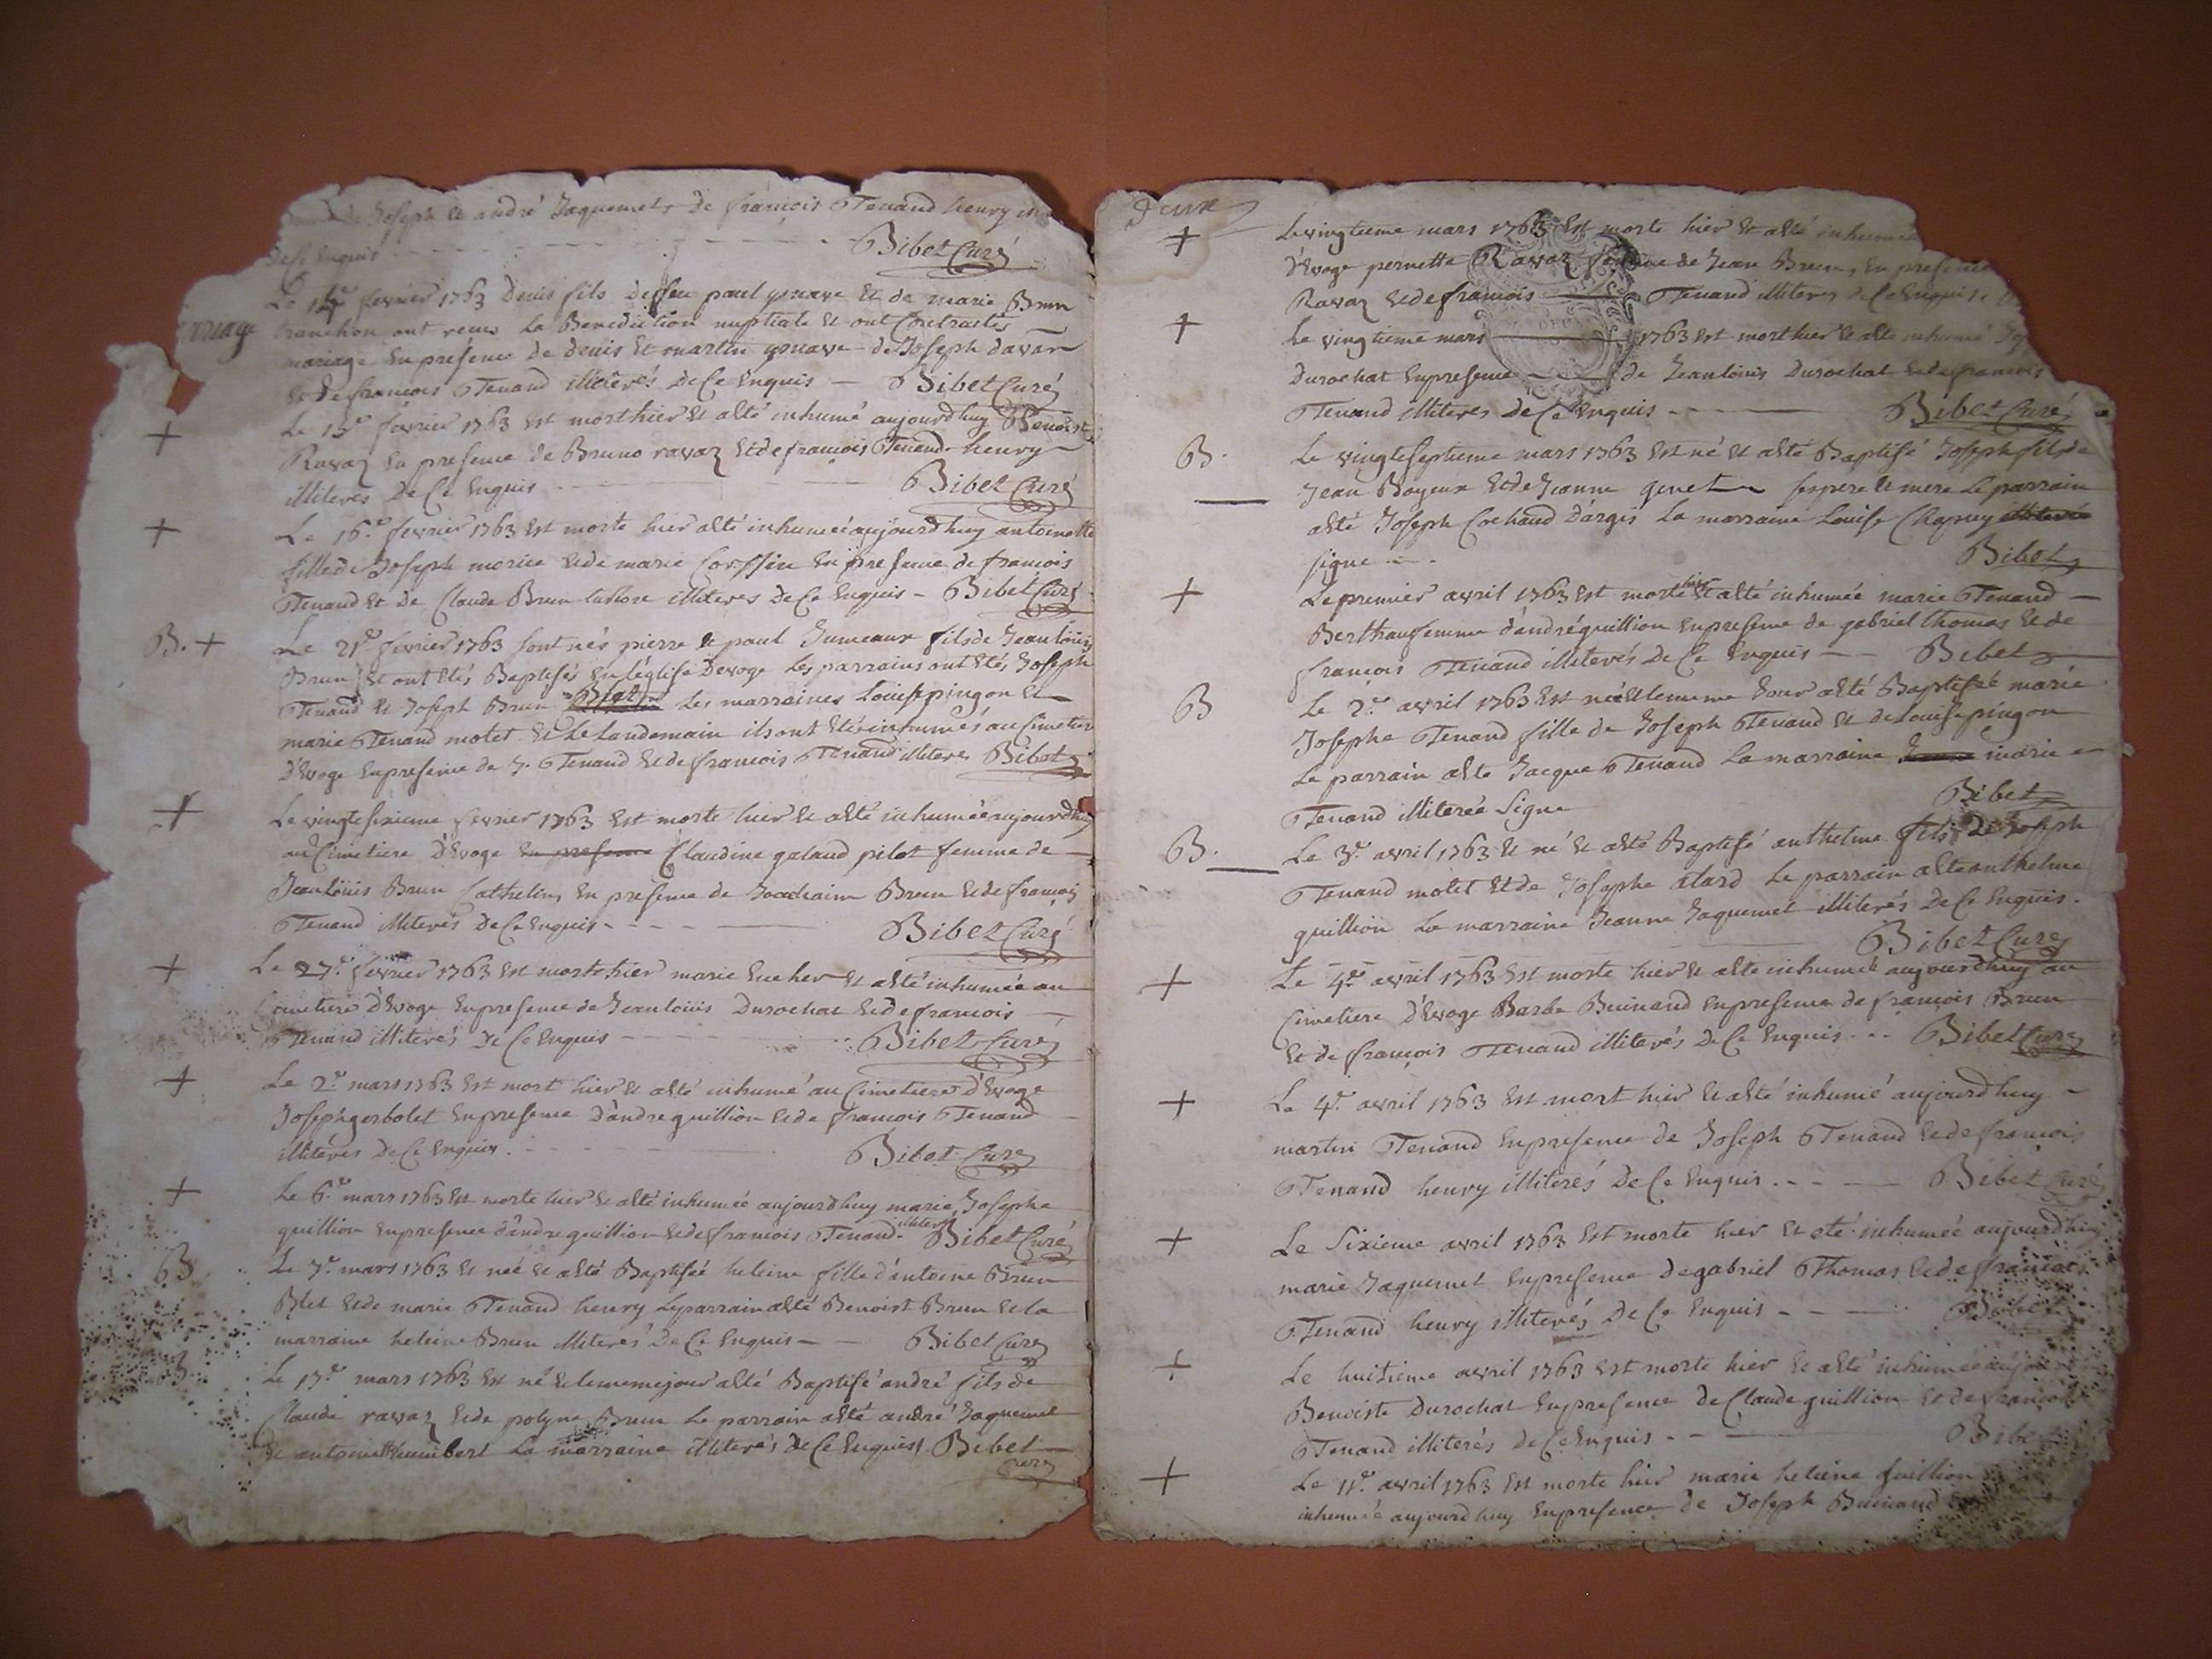 de Joseph et andré Jaquemet, de françois Tenand henry
de Ce Enquis Bibet Curé
Le fevrier 1763 Denis fils de feu paul et de marie Brun
mariage tranchon ont recus La Benediction nuptiale et ont Contractés
mariage En présence de denis et martin de Joseph
et de francois Tenand illiterés De Ce Enquis — Bibet Curé
+ Le 15e fevrier 1763 est mort hier et a Eté inhumé aujourdhuy Benoist
Ravaz En presence de Bruno ravaz et de francois Tenand henry
illiteres De Ce Enquis Bibet Curé
+ Le 16e fevrier 1763 est morte hier a Eté inhumée aujourdhuy antoinette
fille de Joseph morice et de marie En presence de francois
Tenand et de Claude Brun illiteres De Ce Enquis — Bibet Curé
B. + Le 21e fevrier 1763 sont nés pierre et paul Jumeaux fils de Jean Louis
Brun et ont Etés Baptisés En l'église d'Evoge Les parrains ont Etés Joseph
Tenand et Joseph Brun Les marraines Louise pingon et
marie Tenand motet et Le Landemain ils ont Eté inhumés au Cimetiere
d'Evoge En presence de J. Tenand et de francois Tenand illiteres Bibet
+ Le vingt sixieme fevrier 1763 est morte hier et a Eté inhumée aujourdhuy
au Cimetiere d'Evoge En presence Claudine galand pilot femme de
Jean Louis Brun Cathelin, En presence de Brun et de françois
Tenand illiterés De Ce Enquis Bibet Curé
+ Le 27e fevrier 1763 est morte hier marie Eucher et a Eté inhumée au
Cimetiere d'Evoge En presence de Jean Louis Durochat et de francois
Tenand illiterés De Ce Enquis Bibet Curé
+ Le 2e mars 1763 est mort hier et a Eté inhumé au Cimetiere d'Evoge
Joseph gerbolet En presence d'andre guillion et de francois Tenand
illiterés De Ce Enquis Bibet Curé
+ Le 6e mars 1763 est morte hier et a Eté inhumée aujourdhuy marie Josephe
guillion En presence d'andre guillion et de francois Tenand illiteres Bibet Curé
B Le 7e mars 1763 et née et a Eté Baptisée heleine fille d'antoine Brun
Blet et de marie Tenand henry Le parrain a Eté Benoist Brun et la
marraine heleine Brun illiterés De Ce Enquis — Bibet Curé
B Le 17e mars 1763 est né et le meme jour a Eté Baptisé andré fils de
Claude ravaz et de polyne Brun Le parrain a Eté andré Jaquemet
et antoinette humbert La marraine illiterés De Ce Enquis Bibet
Curé
Deux
+ Le vingtieme mars 1763 est morte hier et a Eté inhumée
d'Evoge pernette Ravaz femme de Jean Brun, En presence
Ravaz et de francois Tenand illiteres de Ce Enquis.
+ Le vingtieme mars 1763 est mort hier et a Eté inhumé
Durochat En presence de Jean Louis Durochat et de francois
Tenand illiteres De Ce Enquis Bibet Curé
B. Le vingt septieme mars 1763 est né et a Eté Baptisé Joseph fils de
Jean Boyeux et de Jeanne genet ses pere et mere Le parrain
a Eté Joseph Cochand d'argis La marraine Louise Chapuy illiterée
signe Bibet
+ Le premier avril 1763 est morte hier et a Eté inhumée marie Tenand —
Berthau femme d'andré guillion En presence de gabriel thomas et de
francois Tenand illiterés De Ce Enquis — Bibet
B Le 2e avril 1763 est née et le meme Jour a Eté Baptisée marie
Josephe Tenand fille de Joseph Tenand et de Louise pingon
Le parrain a Eté Jacque Tenand La marraine marie
Tenand illiterée signe Bibet
B. Le 3e avril 1763 et né et a Eté Baptisé anthelme fils de Joseph
Tenand motet et de Josephe alard Le parrain a Eté anthelme
guillion La marraine Jeanne Jaquemet illiterés De Ce Enquis.
Bibet Curé
+ Le 4e avril 1763 est morte hier et a Eté inhumée aujourdhuy au
Cimetiere d'Evoge Barbe Buinand En presence de francois Brun
et de françois Tenand illiterés De Ce Enquis Bibet Curé
+ Le 4e avril 1763 est mort hier et a Eté inhumé aujourdhuy —
martin Tenand En presence de Joseph Tenand et de francois
Tenand henry illiterés De Ce Enquis Bibet Curé
+ Le Sixieme avril 1763 est morte hier et eté inhumée aujourdhuy
marie Jaquemet En presence de gabriel Thomas et de francois
Tenand henry illiterés De Ce Enquis Bibet
+ Le huitieme avril 1763 est morte hier et a Eté inhumée
Benoiste Durochat En presence de Claude guillion et de françois
Tenand illiterés de Ce Enquis Bibe
+ Le 11e avril 1763 est morte hier marie heleine guillion
inhumée aujourdhuy En presence de Joseph Buinand